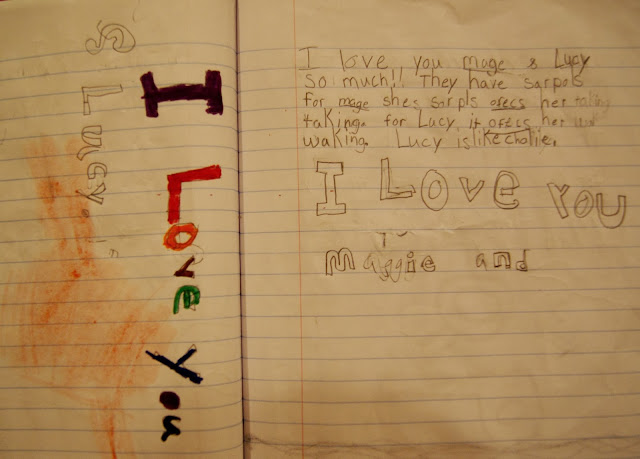 S Lucy.
I Love You
I love you mage & Lucy
so much!! They have sarpols
for mage shes sarpls ofecs her talking
taking. for Lucy it ofecs her
waking. Lucy is like cholie.
I Love You
Maggie and